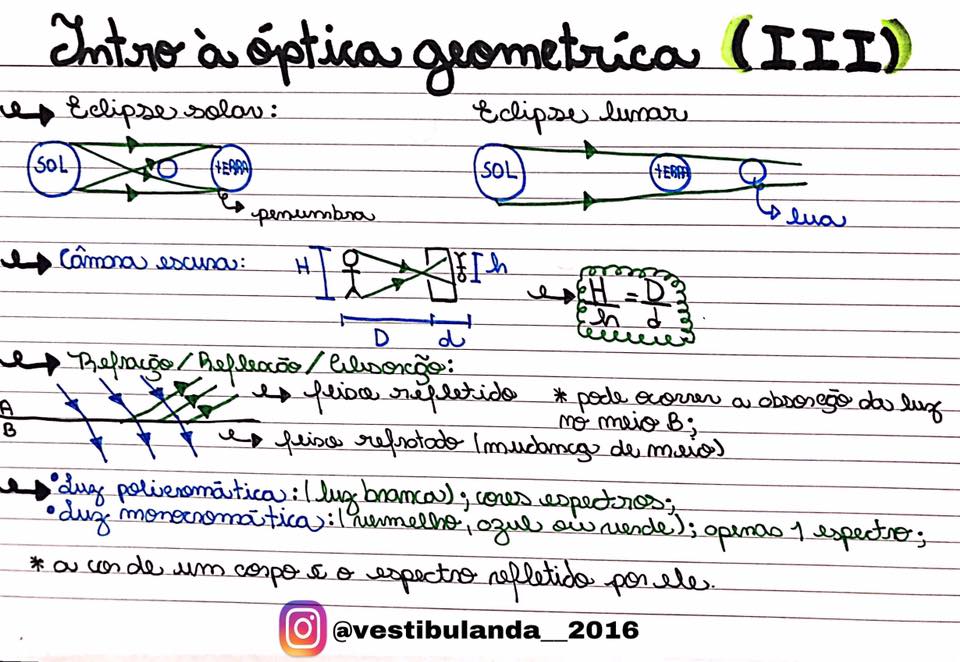 Intro à óptica geometrica (III)
Eclipse solar:
Eclipse lunar
SOL
TERRA
penumbra
SOL
TERRA
lua
Câmara escura:
H
h
D
d
H/h = D/d
Refração/Reflexão/Absorção:
A
B
feixe refletido
* pode ocorrer a absorção da luz no meio B;
feixe refratado (mudança de meio)
• Luz policromática: (luz branca); cores espectros;
• Luz monocromática: (vermelho, azul ou verde); apenas 1 espectro;
* a cor de um corpo é o espectro refletido por ele.
@vestibulanda__2016